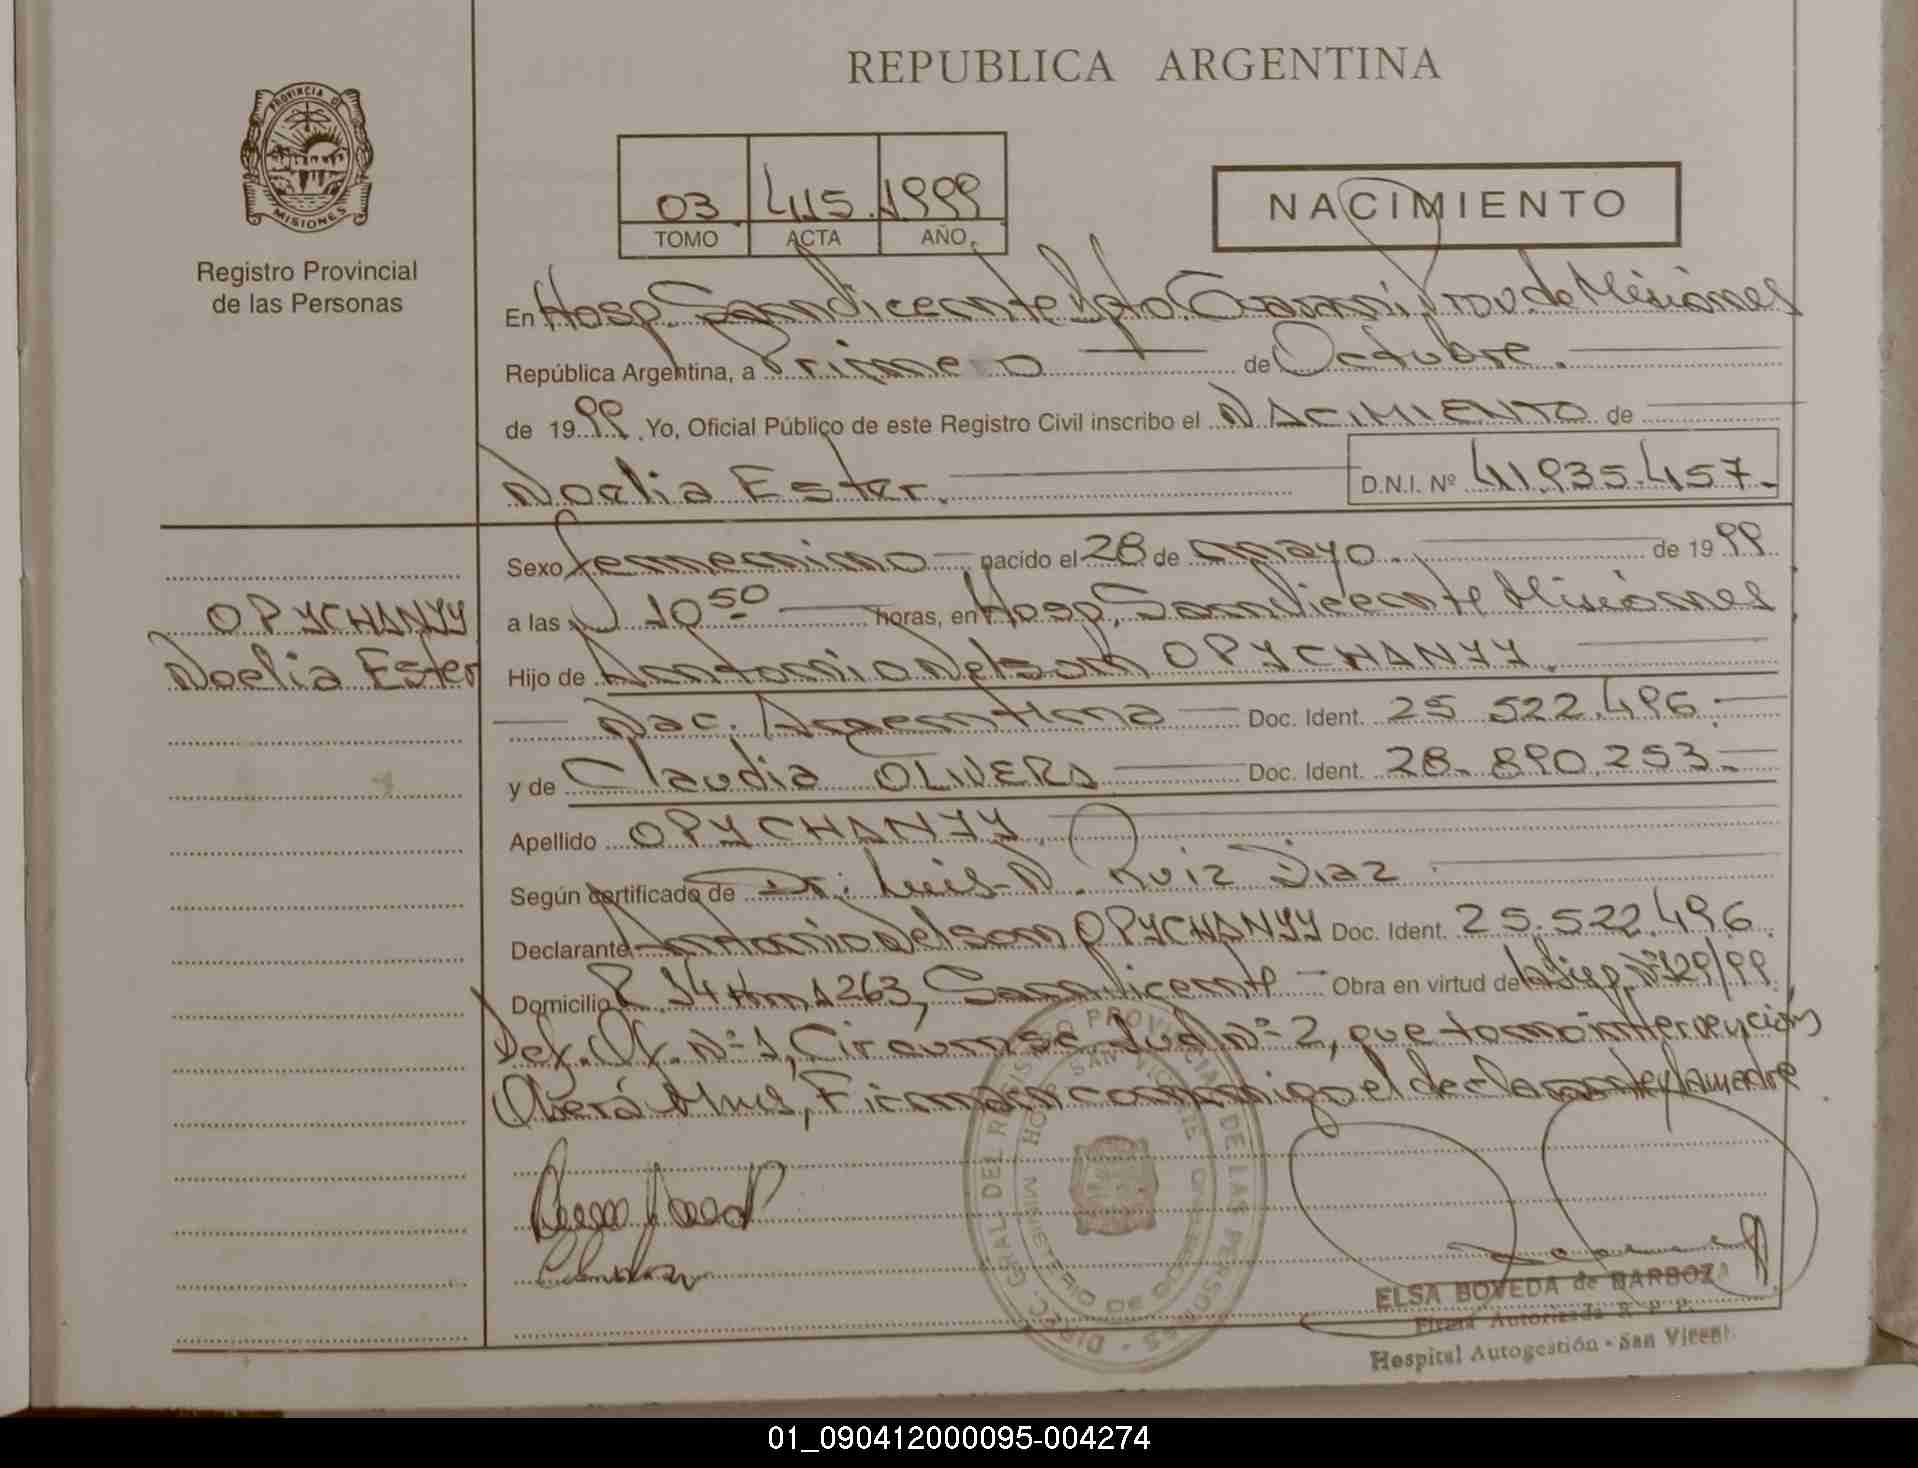 REPUBLICA ARGENTINA
PROVINCIA DE
MISIONES
Registro Provincial
de las Personas
03 415 1999
TOMO ACTA AÑO
NACIMIENTO
En Hosp. San Vicente Dpto. Guaraní, Prov. de Misiones
República Argentina, a Primero de Octubre.
de 1999. Yo, Oficial Público de este Registro Civil inscribo el NACIMIENTO de
Noelia Ester. D.N.I. Nº 41.935.457.-
Sexo femenino nacido el 28 de mayo. de 1999.
OPYCHANYY
a las 10 50 horas, en Hosp. San Vicente Misiones
Noelia Ester
Hijo de Antonio Nelson OPYCHANYY.
Nac. Argentina Doc. Ident. 25 522.496.-
y de Claudia OLIVERA Doc. Ident. 28.890.253.-
Apellido OPYCHANYY.
Según certificado de Dr. Luis N. Ruiz Diaz.
Declarante Antonio Nelson OPYCHANYY Doc. Ident. 25.522.496.
Domicilio R. 14 Km 1263, San Vicente - Obra en virtud de la Disp. Nº 129/99.
Def. Of. Nº 1, Circunsc. Jud. Nº 2, que tomó intervención
Oberá Mnes, Firman conmigo el declarante y la madre
DIREC. GRAL. DEL REGISTRO PROVINCIAL DE LAS PERSONAS
HOSP SAN VICENTE
MISIONES
ELSA BOVEDA de BARBOZA
Firma Autorizada R. P. P.
Hospital Autogestión - San Vicente
01_090412000095-004274